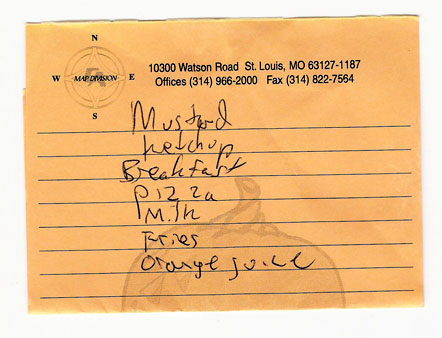 N
W MAP DIVISION E
S
10300 Watson Road St. Louis, MO 63127-1187
Offices (314) 966-2000 Fax (314) 822-7564
Mustard
ketchup
Breakfast
pizza
Milk
Fries
orange juice